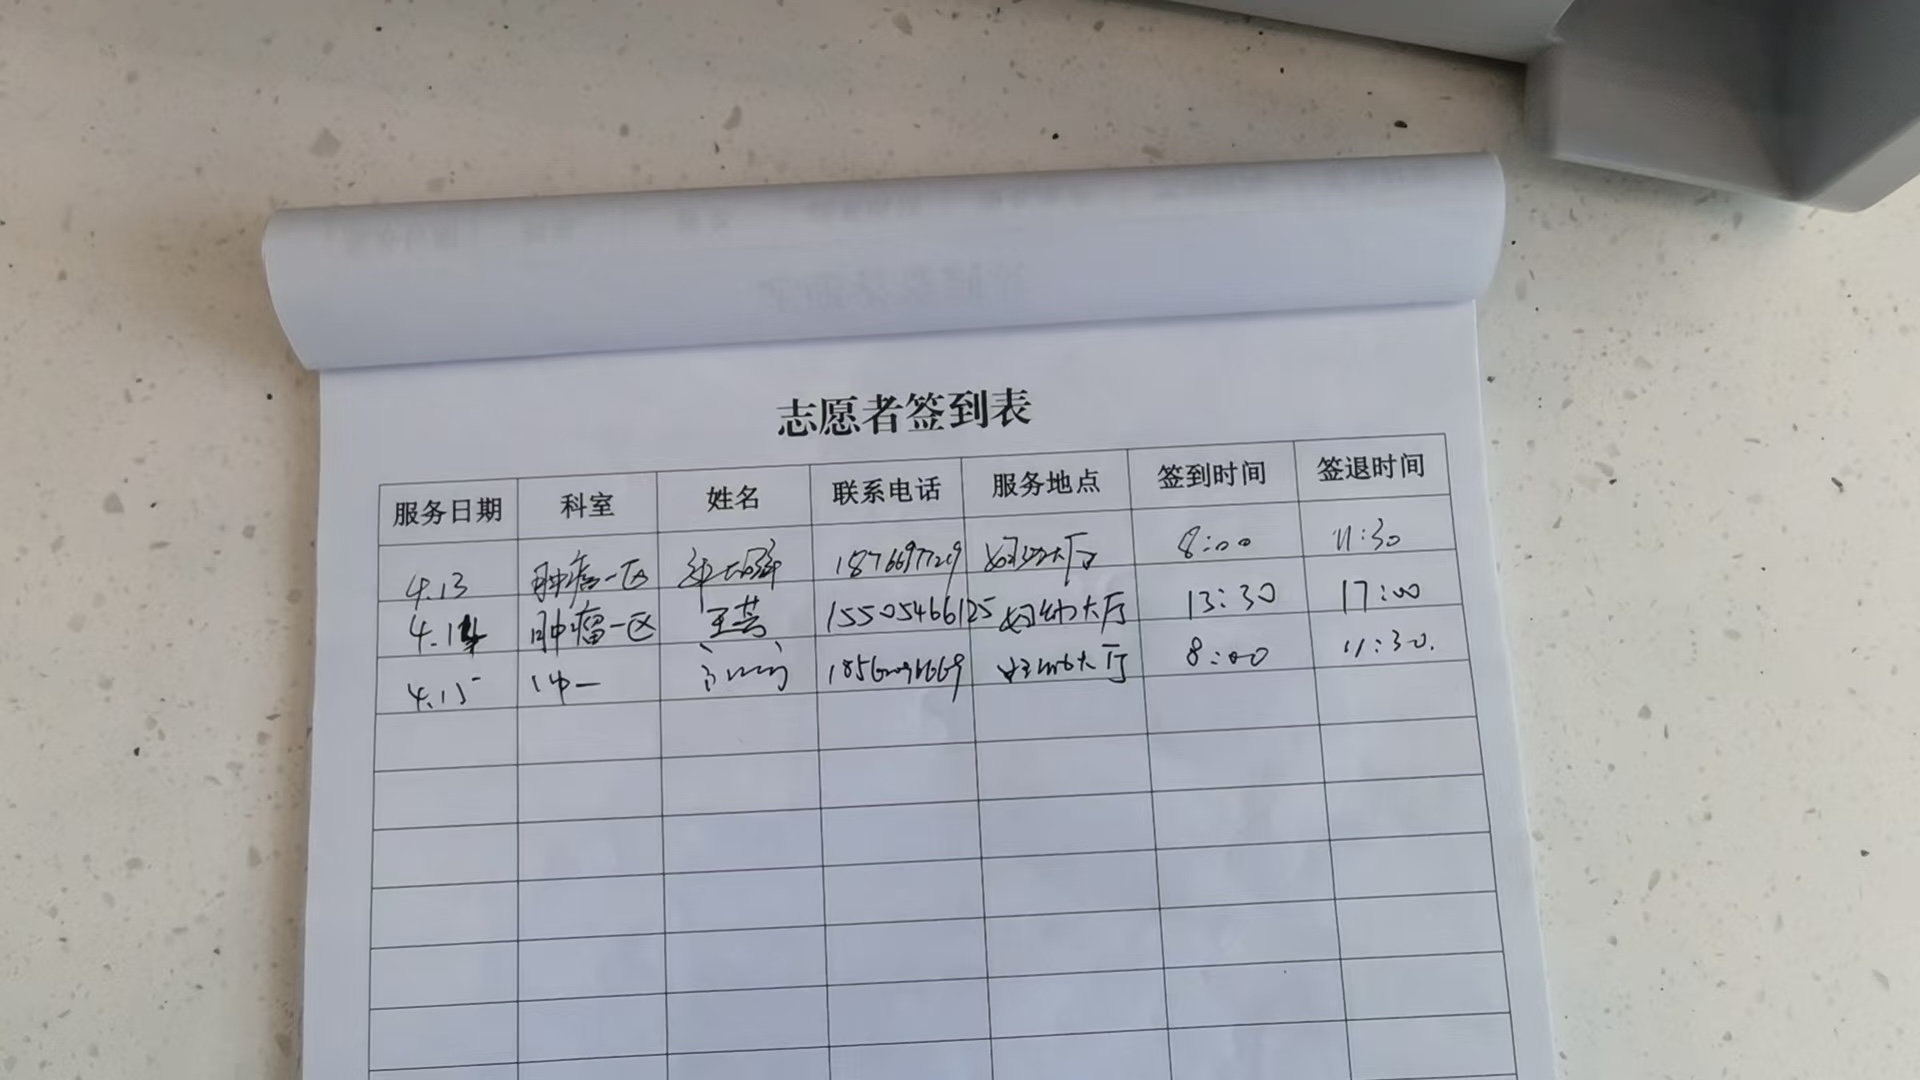 志愿者签到表
服务日期 科室 姓名 联系电话 服务地点 签到时间 签退时间
4.13 肿瘤一区 妇幼大厅 8:00 11:30
4.14 肿瘤一区 王芸 15505466125 妇幼大厅 13:30 17:00
4.15 肿一 妇幼大厅 8:00 11:30.